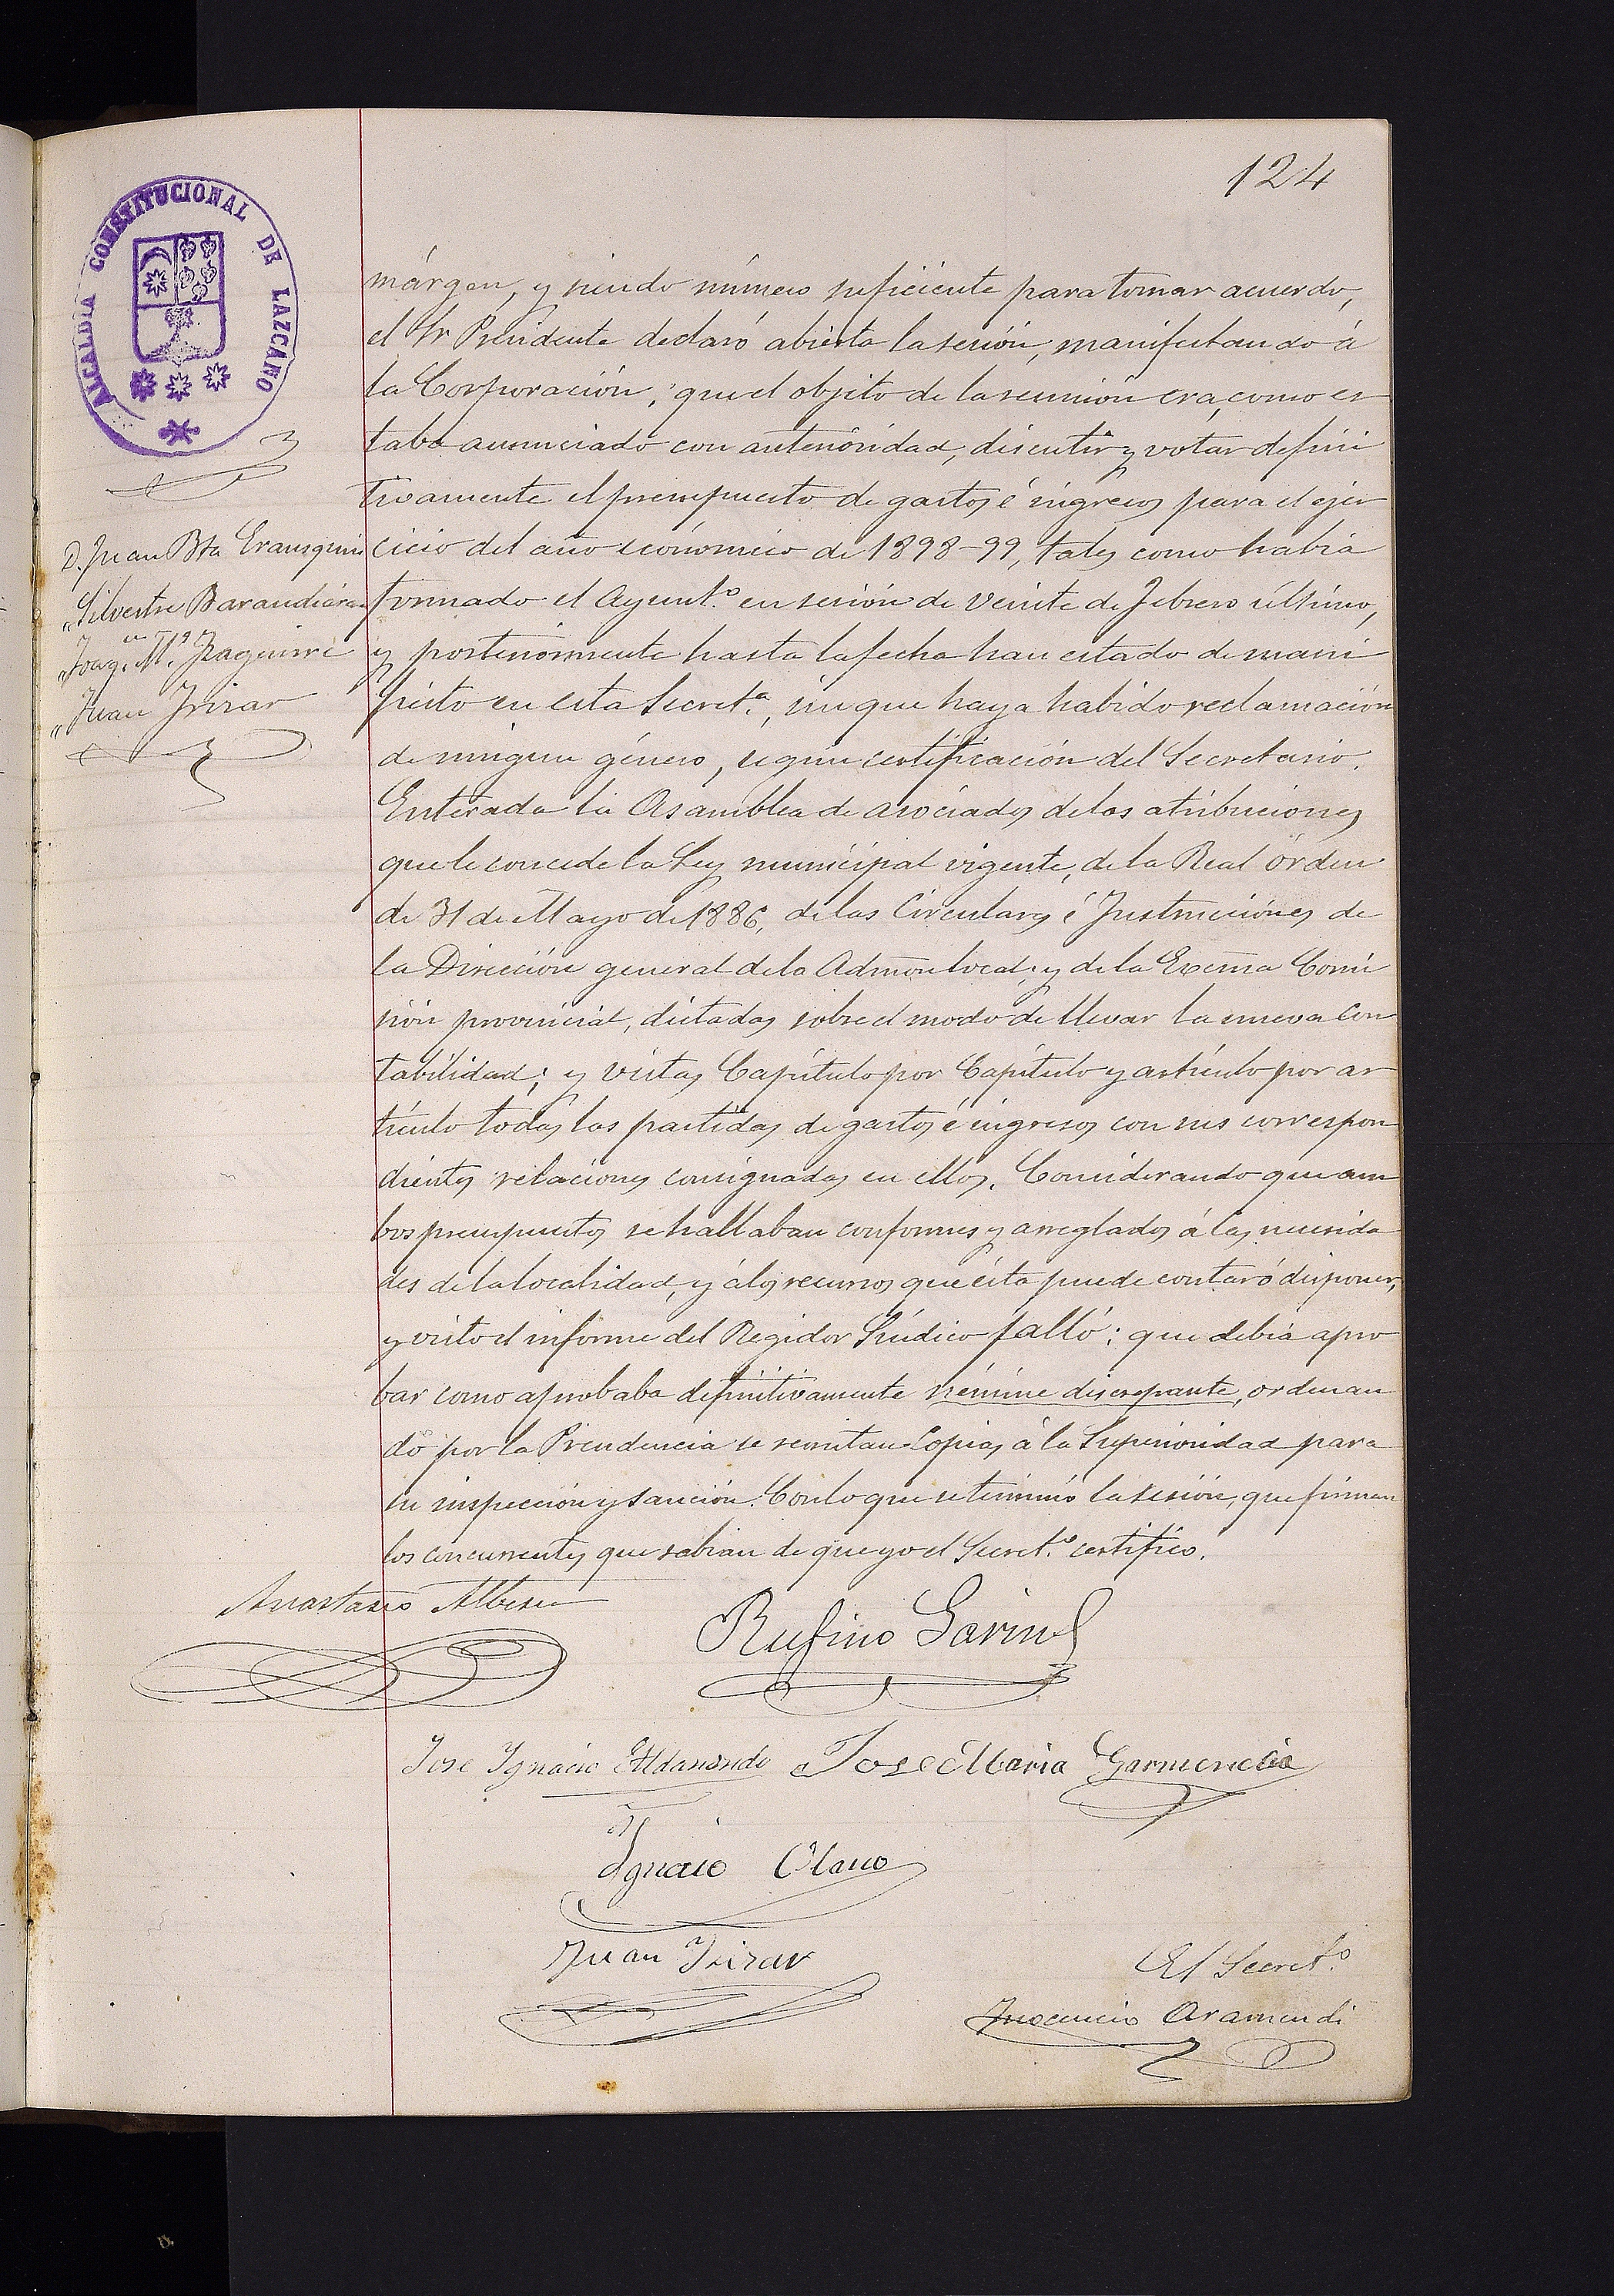 124
ALCALDÍA CONSTITUCIONAL DE LAZCANO
D. Juan Bta Erausquin
„ Silvestre Barandiaran
„ Joaqⁿ. Mª. Izaguirre
„ Juan Irizar
márgen, y siendo número suficiente para tomar acuerdo,
el Sr Presidente declaró abierta la sesión, manifestando á
la Corporación, que el objeto de la reunión era, como es
taba anunciado con anterioridad, discutir y votar defini
tivamente el presupuesto de gastos é ingresos para el ejer
cicio del año económico de 1898-99, tales como había
formado el Ayuntº. en sesión de veinte de Febrero último,
y posteriormente hasta la fecha han estado de mani
fiesto en esta Secretª., sin que haya habido reclamación
de ningun género, segun certificación del Secretario.
Enterada la Asamblea de asociados de las atribuciones
que le concede la Ley municipal vigente, de la Real órden
de 31 de Mayo de 1886, de las Circulares é Instrucciones de
la Dirección general de la Admon local, y de la Excma Comi
sión provincial, dictadas sobre el modo de llevar la nueva con
tabilidad; y vistas Capítulo por Capítulo y artículo por ar
tículo todas las partidas de gastos é ingresos con sus correspon
dientes relaciones consignadas en ellos. Considerando que am
bos presupuestos se hallaban conformes y arreglados á las necesida
des de la localidad, y á los recursos que ésta puede contar ó disponer,
y visto el informe del Regidor Síndico falló: que debía apro
bar como aprobaba definitivamente némine discrepante, ordenan
do por la Presidencia se remitan copias á la Superioridad para
su inspección y sanción. Con lo que se terminó la sesión, que firman
los concurrentes que sabian de que yo el Secretº. certifico.
Anastasio Albisu
Rufino Garin
Jose Ignacio Aldanondo Jose Maria Garmendia
Ignacio Olano
Juan Irizar
El Secretº.
Inocencio Aramendi